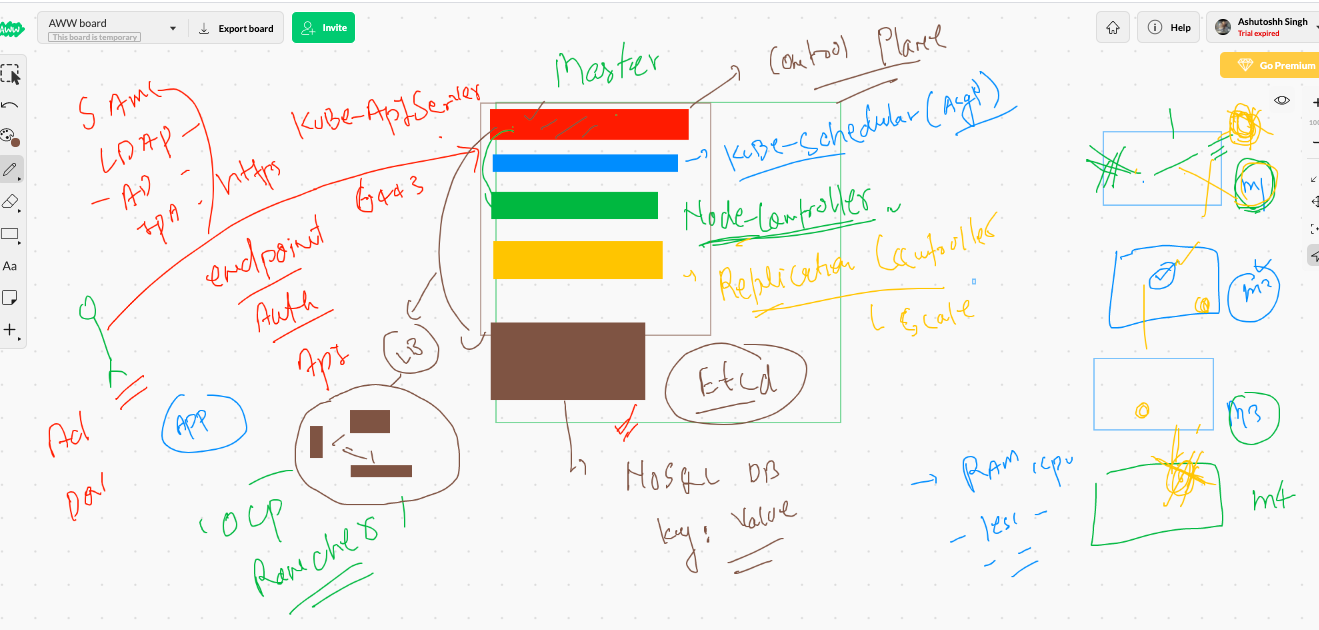 AWW board
This board is temporary
Export board
Invite
Help
Ashutoshh Singh
Trial expired
Go Premium
Aa
Master
Control Plane
KuBe-ApiServer
SAML
LDAP
AD
https
6443
endpoint
Auth
Api
KuBe-Schedular (Algo)
Node-Controller
Replication Controller
Scale
Etcd
LB
APP
OCP
Rancher
NoSQL DB
key: Value
RAM, CPU
m1
m2
m3
m4